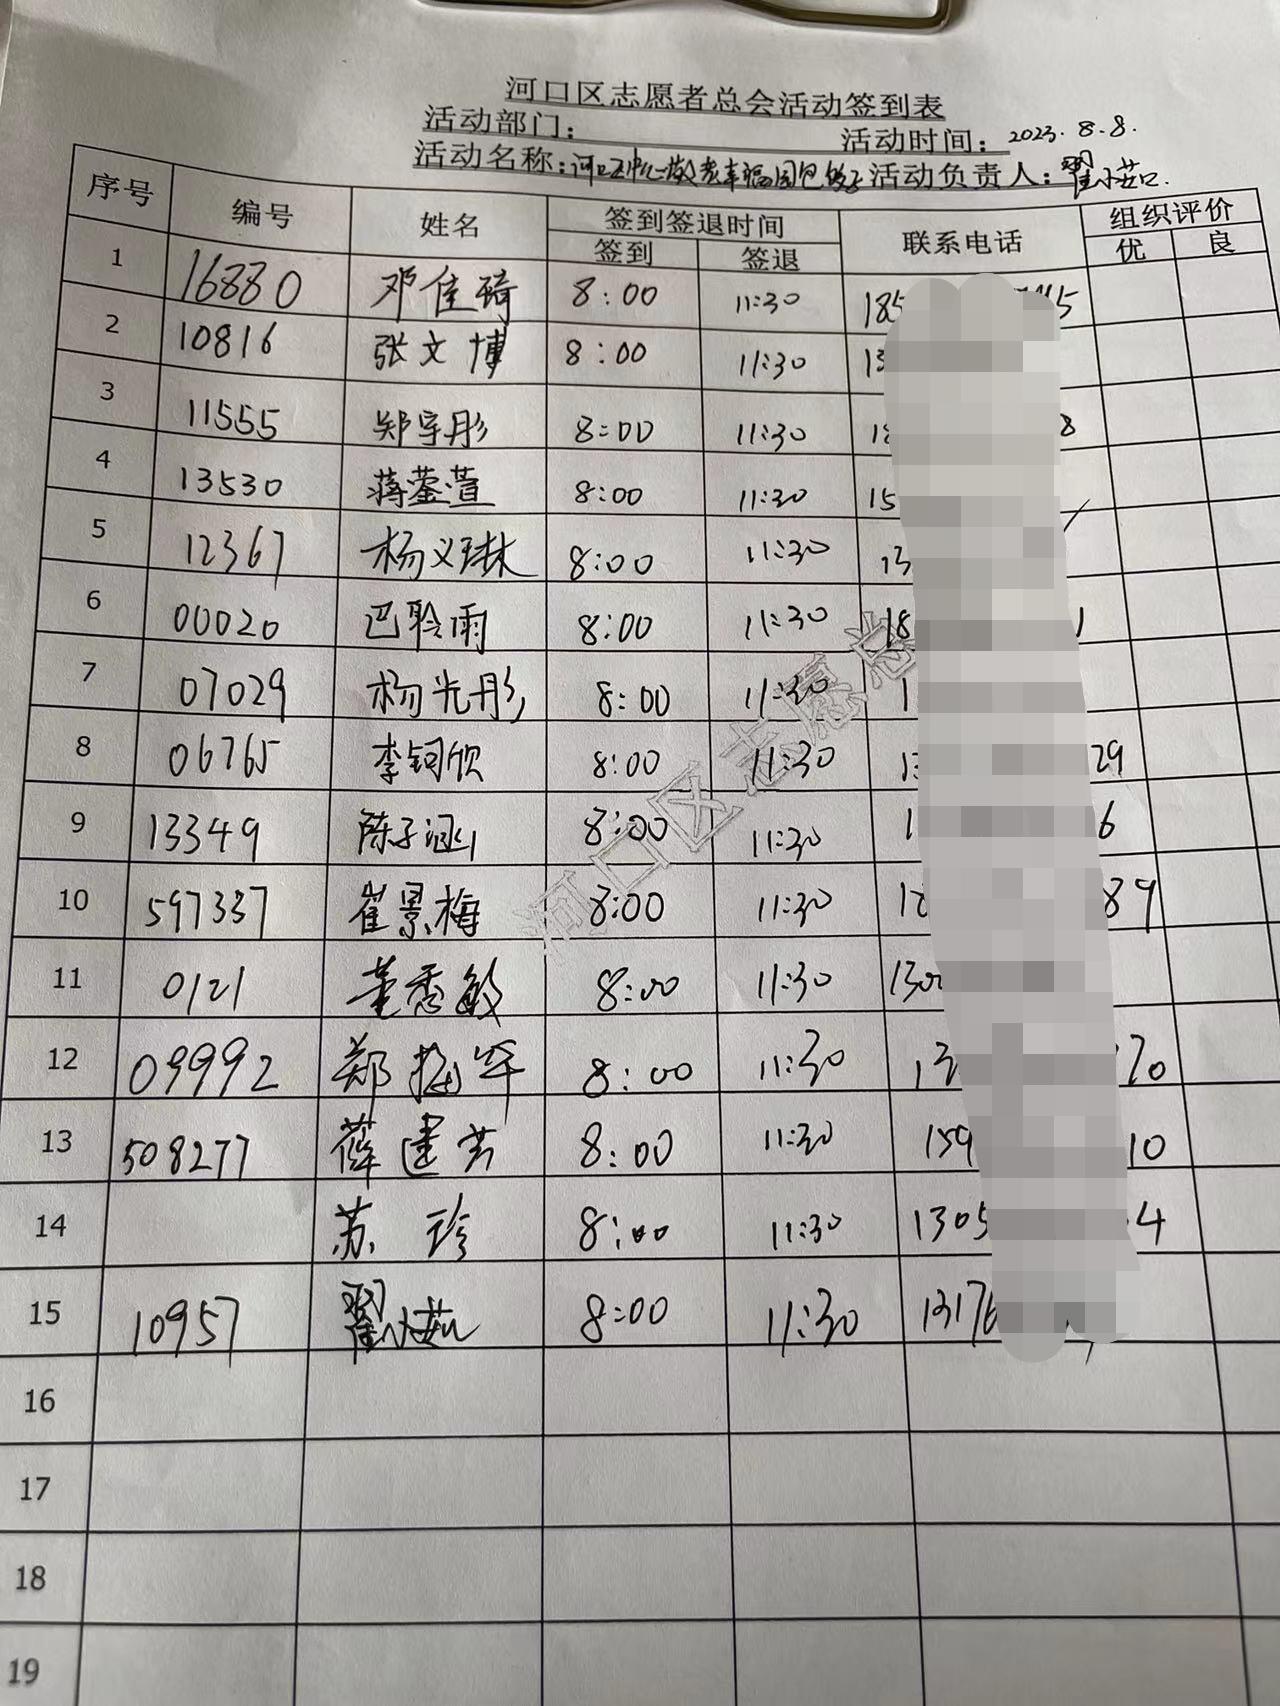 河口区志愿者总会活动签到表
活动部门： 活动时间：2023.8.8.
活动名称：河口 敬老 包饺子 活动负责人：翟小茹
序号 编号 姓名 签到签退时间 联系电话 组织评价
签到 签退 优 良
1 16880 邓佳琦 8:00 11:30 185
2 10816 张文博 8:00 11:30 13
3 11555 郑宇彤 8:00 11:30 18 8
4 13530 蒋蓥萱 8:00 11:30 15
5 12367 杨义琳 8:00 11:30 13
6 00020 巴聆雨 8:00 11:30 18 1
7 07029 杨光彤 8:00 11:30 1
8 06765 李钶欣 8:00 11:30 13 29
9 13349 陈子涵 8:00 11:30 1 6
10 597337 崔景梅 8:00 11:30 89
11 0121 董秀敏 8:00 11:30 130
12 09992 郑 8:00 11:30 13 70
13 508277 薛建芳 8:00 11:30 159 10
14 苏珍 8:00 11:30 1305 4
15 10957 翟小茹 8:00 11:30 13176
16
17
18
19
河口区志愿总